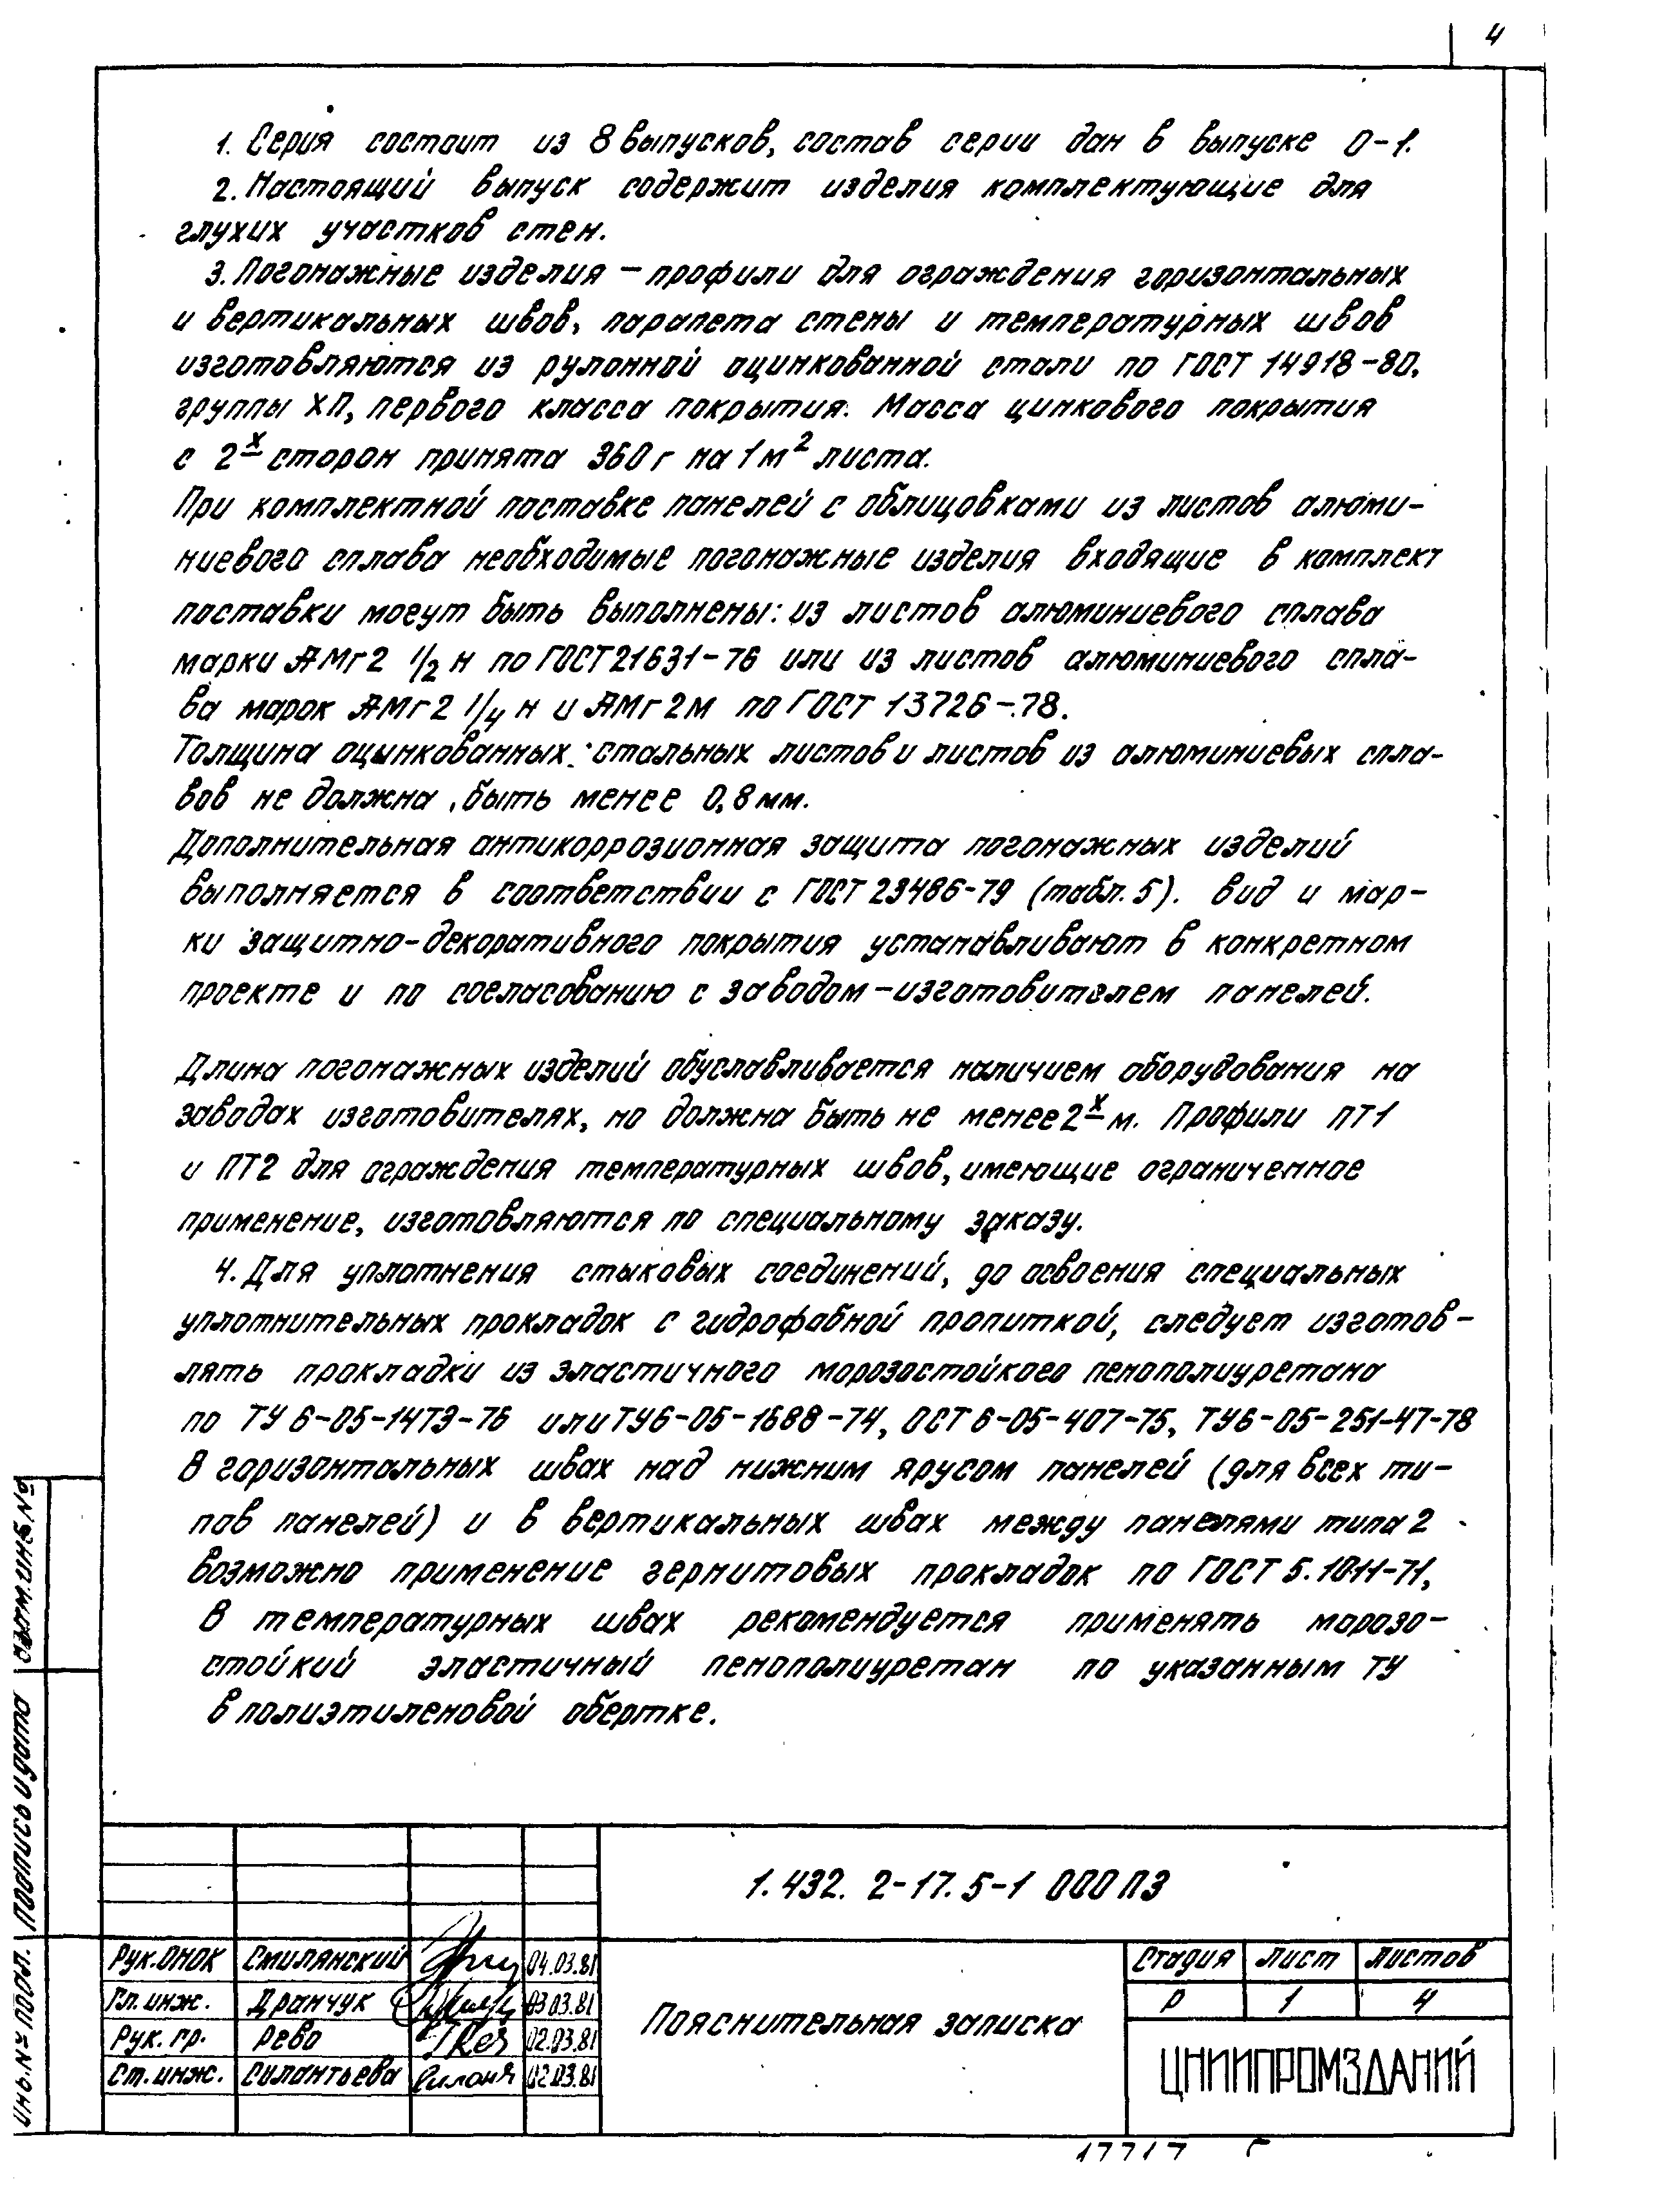 4
1. Серия состоит из 8 выпусков, состав серии дан в выпуске 0-1.
2. Настоящий выпуск содержит изделия комплектующие для
глухих участков стен.
3. Погонажные изделия – профили для ограждения горизонтальных
и вертикальных швов, парапета стены и температурных швов
изготовляются из рулонной оцинкованной стали по ГОСТ 14918-80,
группы ХП, первого класса покрытия. Масса цинкового покрытия
с 2х сторон принята 360 г на 1 м² листа.
При комплектной поставке панелей с облицовками из листов алюми-
ниевого сплава необходимые погонажные изделия входящие в комплект
поставки могут быть выполнены: из листов алюминиевого сплава
марки АМг2 1/2 н по ГОСТ 21631-76 или из листов алюминиевого спла-
ва марок АМг2 1/4 н и АМг2М по ГОСТ 13726-78.
Толщина оцынкованных стальных листов и листов из алюминиевых спла-
вов не должна быть менее 0,8 мм.
Дополнительная антикоррозионная защита погонажных изделий
выполняется в соответствии с ГОСТ 23486-79 (табл. 5). Вид и мар-
ки защитно-декоративного покрытия устанавливают в конкретном
проекте и по согласованию с заводом-изготовителем панелей.
Длина погонажных изделий обуславливается наличием оборудования на
заводах изготовителях, но должна быть не менее 2х м. Профили ПТ1
и ПТ2 для ограждения температурных швов, имеющие ограниченное
применение, изготовляются по специальному заказу.
4. Для уплотнения стыковых соединений, до освоения специальных
уплотнительных прокладок с гидрофабной пропиткой, следует изготов-
лять прокладки из эластичного морозостойкого пенополиуретана
по ТУ 6-05-1473-76 или ТУ6-05-1688-74, ОСТ 6-05-407-75, ТУ6-05-251-47-78
В горизонтальных швах над нижним ярусом панелей (для всех ти-
пов панелей) и в вертикальных швах между панелями типа 2
возможно применение гернитовых прокладок по ГОСТ 5.1011-71,
В температурных швах рекомендуется применять морозо-
стойкий эластичный пенополиуретан по указанным ТУ
в полиэтиленовой обертке.
Взам.инв.№
Подпись и дата
Инв.№ подл.
1.432. 2-17. 5-1 000 ПЗ
Рук.ОНОК Смилянский 04.03.81
Гл.инж. Дранчук 03.03.81
Рук. гр. Рево 02.03.81
Ст.инж. Силантьева 02.03.81
Пояснительная записка
Стадия Лист Листов
Р 1 4
ЦНИИПРОМЗДАНИЙ
17717